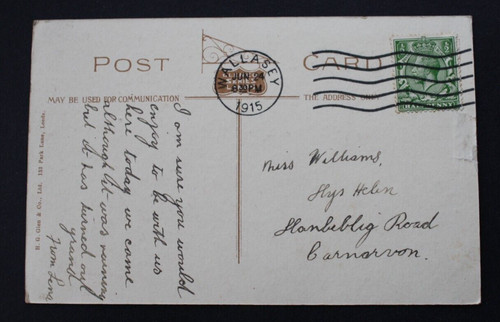 POST CARD
MAY BE USED FOR COMMUNICATION
THE ADDRESS ONLY
WALLASEY
JUN 24
1915
HALF PENNY
I am sure you would
enjoy to be with us
here today we came
although it was raining
but it has turned out
grand
From Lena
Miss Williams,
Hys Helen
Llanbeblig Road
Carnarvon.
& Co., Ltd. 132 Park Lane, Leeds.